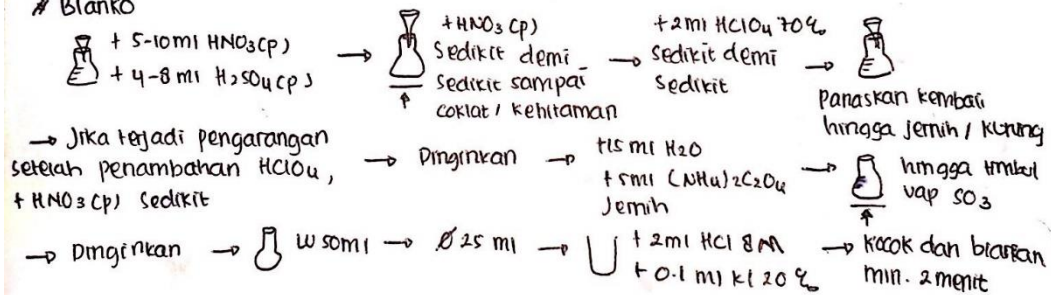 # Blanko
+ 5-10ml HNO3(p)
+ 4-8 ml H2SO4(p)
→
+HNO3(p)
sedikit demi
sedikit sampai
coklat / kehitaman
→
+2ml HClO4 70%
sedikit demi
sedikit
→
Panaskan kembali
hingga jernih / kuning
→ Jika terjadi pengarangan
setelah penambahan HClO4,
+ HNO3(p) sedikit
→ Dinginkan →
+15 ml H2O
+5ml (NH4)2C2O4
Jernih
→
hingga timbul
uap SO3
→ Dinginkan → W 50ml → Ø 25 ml →
+ 2ml HCl 8M
+ 0.1 ml KI 20%
→ kocok dan biarkan
min. 2 menit